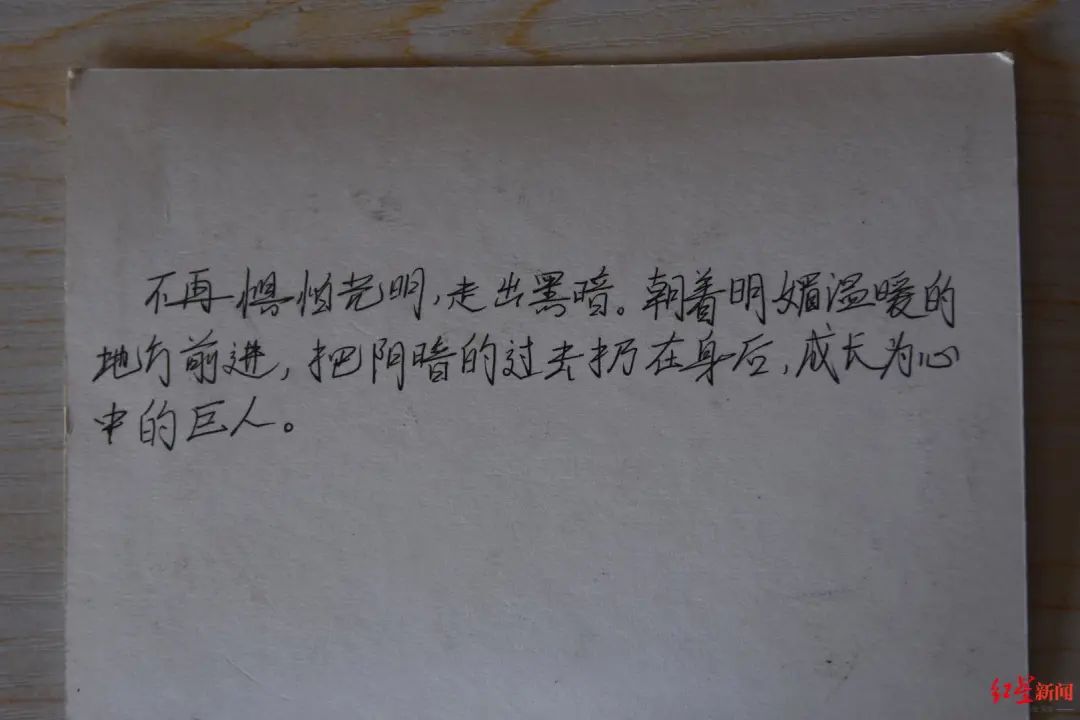 不再惧怕光明，走出黑暗。朝着明媚温暖的
地方前进，把阴暗的过去扔在身后，成长为心
中的巨人。
红星新闻